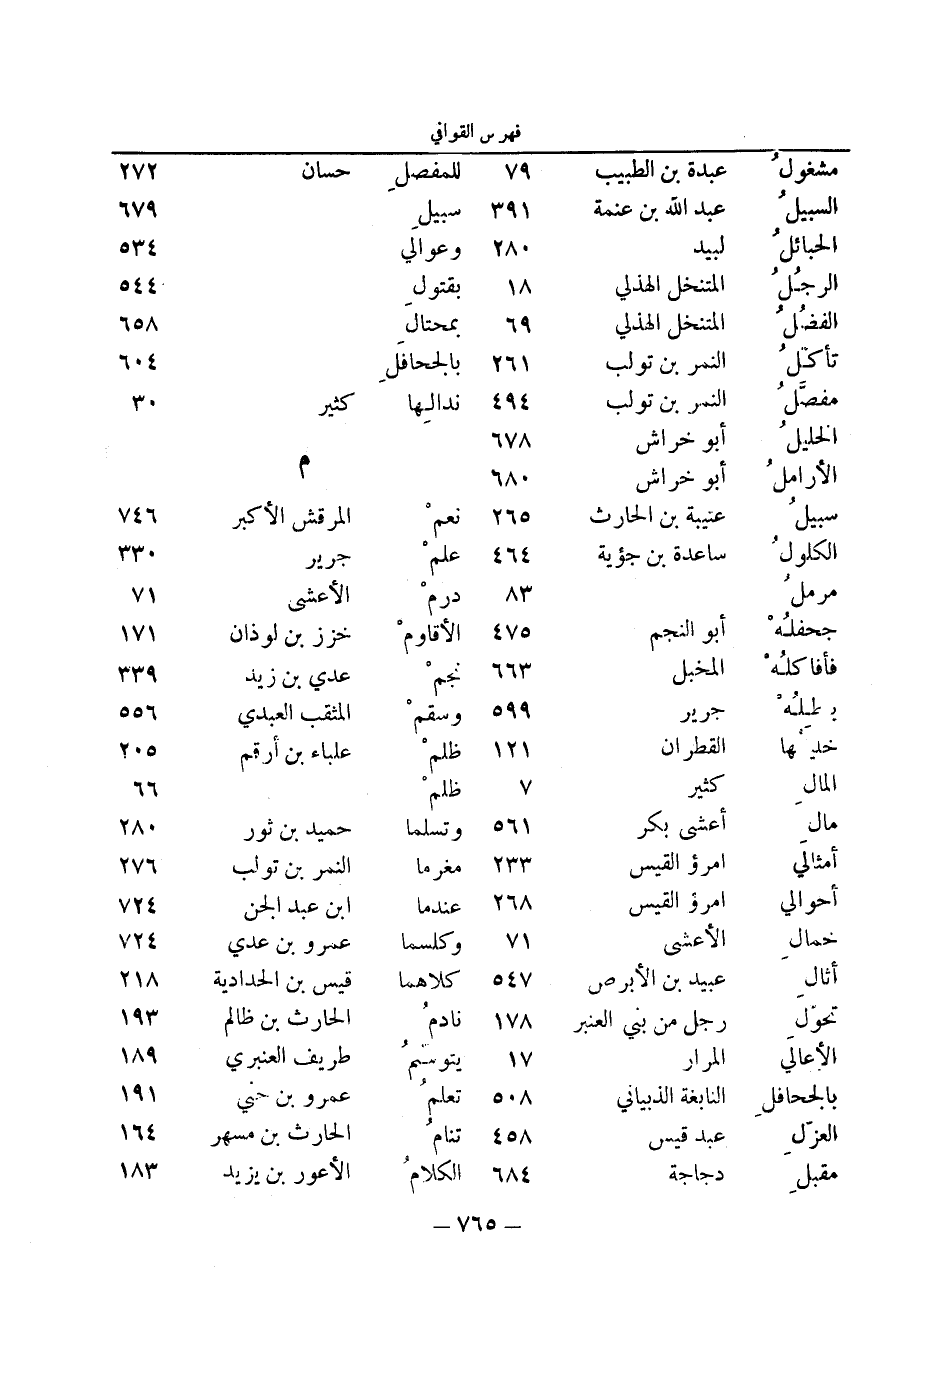 فهرس القوافي
مشغولُ عبدة بن الطبيب ٧٩
السبيلُ عبد الله بن عنمة ٣٩١
الحبائلُ لبيد ٢٨٠
الرجُلُ المتنخل الهذلي ١٨
الفضُلُ المتنخل الهذلي ٦٩
تأكّلُ النمر بن تولب ٢٦١
مفصَّلُ النمر بن تولب ٤٩٤
الخليلُ أبو خراش ٦٧٨
الأراملُ أبو خراش ٦٨٠
سبيلُ عتيبة بن الحارث ٢٦٥
الكلولُ ساعدة بن جؤية ٤٦٤
مرملُ ٨٣
جحفلُهْ أبو النجم ٤٧٥
فأفاكلُهْ المخبل ٦٦٣
جرير ٥٩٩
القطران ١٢١
المالِ كثير ٧
مالِ أعشى بكر ٥٦١
أمثالي امرؤ القيس ٢٣٣
أحوالي امرؤ القيس ٢٦٨
خمالِ الأعشى ٧١
أثالِ عبيد بن الأبرص ٥٤٧
تحوّلِ رجل من بني العنبر ١٧٨
الأعالي المرار ١٧
بالجحافلِ النابغة الذبياني ٥٠٨
العزّلِ عبد قيس ٤٥٨
مقبلِ دجاجة ٦٨٤
للمفصلِ حسان ٢٧٢
سبيلِ ٦٧٩
وعوالي ٥٣٤
بقتولِ ٥٤٤
بمحتالِ ٦٥٨
بالجحافلِ ٦٠٤
ندالِها كثير ٣٠
م
نعمْ المرقش الأكبر ٧٤٦
علمْ جرير ٣٣٠
درمْ الأعشى ٧١
الأقاومْ خزز بن لوذان ١٧١
نجمْ عدي بن زيد ٣٣٩
وسقمْ المثقب العبدي ٥٥٦
ظلمْ علباء بن أرقم ٢٠٥
ظلمْ ٦٦
وتسلما حميد بن ثور ٢٨٠
مغرما النمر بن تولب ٢٧٦
عندما ابن عبد الجن ٧٢٤
وكلسما عمرو بن عدي ٧٢٤
كلاهما قيس بن الحدادية ٢١٨
نادمُ الحارث بن ظالم ١٩٣
يتوسّمُ طريف العنبري ١٨٩
تعلمُ عمرو بن حني ١٩١
تنامُ الحارث بن مسهر ١٦٤
الكلامُ الأعور بن يزيد ١٨٣
— ٧٦٥ —